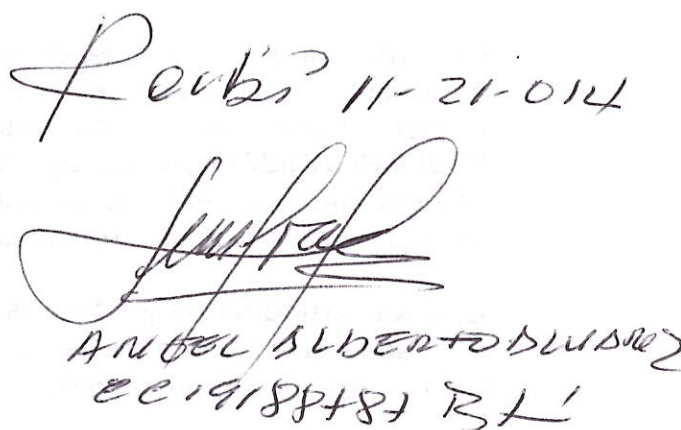 Recibí 11-21-014
ANGEL ALBERTO ALVAREZ
CC 19188787 Btá